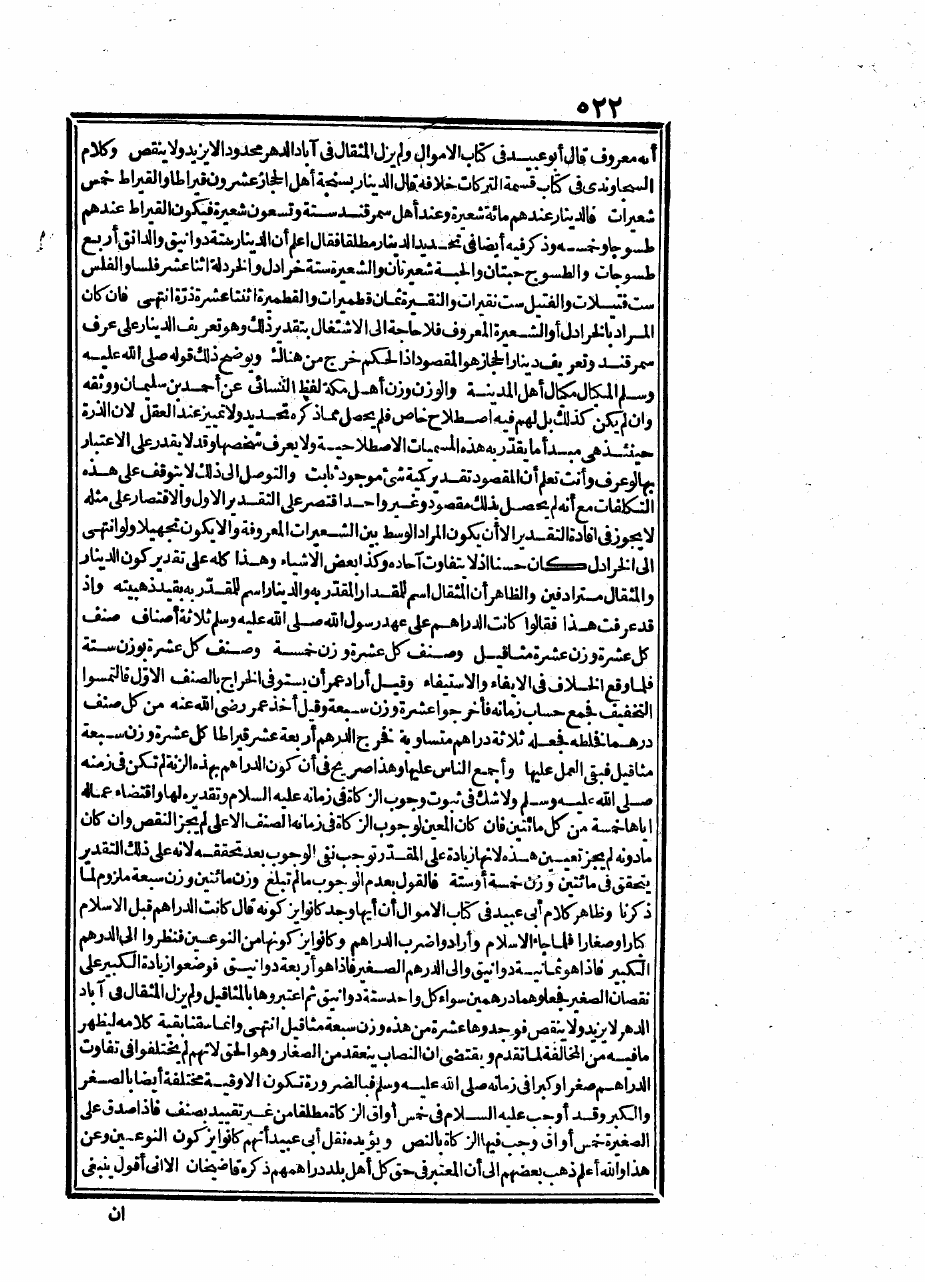 ٥٢٢
أنه معروف قال أبو عبيد فى كتاب الاموال ولم يزل المثقال فى آباد الدهر محدود الايزيد ولا ينقص وكلام
السجاوندى فى كتاب قسمة التركات خلافه قال الدينار بسنجة أهل الحجاز عشرون قيراطا والقيراط خمس
شعيرات فالدينار عندهم مائة شعيرة وعند أهل سمرقند ستة وتسعون شعيرة فيكون القيراط عندهم
طسوجا وخمسه وذكر فيه أيضا فى تحديد الدينار مطلقا فقال اعلم أن الدينار ستة دوانيق والدانق أربع
طسوجات والطسوج حبتان والحبة شعيرتان والشعيرة ستة خرادل والخردلة اثنا عشر فلسا والفلس
ست فتيلات والفتيل ست نقيرات والنقيرة ثمان قطميرات والقطميرة اثنتا عشرة ذرة انتهى فان كان
المراد بالخرادل أو الشعيرة المعروف فلا حاجة الى الاشتغال بتقدير ذلك وهو تعريف الدينار على عرف
سمرقند وتعريف دينار الحجاز هو المقصود اذ الحكم خرج من هناك ويوضح ذلك قوله صلى الله عليه
وسلم المكيال مكيال أهل المدينة والوزن وزن أهل مكة لفظ النسائى عن أحمد بن سليمان ووثقه
وان لم يكن كذلك بل لهم فيه اصطلاح خاص فلم يحصل مما ذكره تحديد ولا تمييز عند العقل لان الذرة
حينئذ هى مبدأ ما يقدر به هذه المسميات الاصطلاحية ولا يعرف شخصها وقد لا يقدر على الاعتبار
بها لو عرف وأنت تعلم أن المقصود تقدير كمية شئ موجود ثابت والتوصل الى ذلك لا يتوقف على هذه
التكلفات مع أنه لم يحصل بذلك مقصود وغير واحد اقتصر على التقدير الاول والاقتصار على مثله
لا يجوز فى افادة التقدير الا أن يكون المراد الوسط بين الشعيرات المعروفة والا يكون تجهيلا ولو انتهى
الى الخرادل كان حسنا اذ لا تتفاوت آحاده وكذا بعض الاشياء وهذا كله على تقدير كون الدينار
والمثقال مترادفين والظاهر أن المثقال اسم للمقدار المقدر به والدينار اسم للمقدر به بقيد ذهبيته واذ
قد عرفت هذا فقالوا كانت الدراهم على عهد رسول الله صلى الله عليه وسلم ثلاثة أصناف صنف
كل عشرة وزن عشرة مثاقيل وصنف كل عشرة وزن خمسة وصنف كل عشرة بوزن ستة
فلما وقع الخلاف فى الايفاء والاستيفاء وقيل أراد عمر أن يستوفى الخراج بالصنف الاول فالتمسوا
التخفيف فجمع حساب زمانه فأخرجوا عشرة وزن سبعة وقيل أخذ عمر رضى الله عنه من كل صنف
درهما فخلطه فجعله ثلاثة دراهم متساوية فخرج الدرهم أربعة عشر قيراطا كل عشرة وزن سبعة
مثاقيل فبقى العمل عليها وأجمع الناس عليها وهذا صريح فى أن كون الدراهم بهذه الزنة لم تكن فى زمنه
صلى الله عليه وسلم ولا شك فى ثبوت وجوب الزكاة فى زمانه عليه السلام وتقديره لها واقتضاء عماله
اياها خمسة من كل مائتين فان كان المعين لوجوب الزكاة فى زمانه الصنف الاعلى لم يجز النقص وان كان
مادونه لم يجز تعيين هذه لانها زيادة على المقدر توجب نفى الوجوب بعد تحققه لانه على ذلك التقدير
يتحقق فى مائتين وزن خمسة أو ستة فالقول بعدم الوجوب مالم تبلغ وزن مائتين وزن سبعة ملزوم لما
ذكرنا وظاهر كلام أبى عبيد فى كتاب الاموال أن أيها وجد كانوا يزكونه قال كانت الدراهم قبل الاسلام
كبارا وصغارا فلما جاء الاسلام وأرادوا ضرب الدراهم وكانوا يزكونها من النوعين فنظروا الى الدرهم
الكبير فاذا هو ثمانية دوانيق والى الدرهم الصغير فاذا هو أربعة دوانيق فوضعوا زيادة الكبير على
نقصان الصغير فجعلوهما درهمين سواء كل واحد ستة دوانيق ثم اعتبروها بالمثاقيل ولم يزل المثقال فى آباد
الدهر لا يزيد ولا ينقص فوجدوها عشرة من هذه وزن سبعة مثاقيل انتهى وانما سقنا بقية كلامه ليظهر
مافيه من المخالفة لما تقدم ويقتضى ان النصاب ينعقد من الصغار وهو الحق لانهم لم يختلفوا فى تفاوت
الدراهم صغرا وكبرا فى زمانه صلى الله عليه وسلم فبالضرورة تكون الاوقية مختلفة أيضا بالصغر
والكبر وقد أوجب عليه السلام فى خمس أواق الزكاة مطلقا من غير تقييد بصنف فاذا صدق على
الصغيرة خمس أواق وجب فيها الزكاة بالنص ويؤيده نقل أبى عبيد أنهم كانوا يزكون النوعين وعن
هذا والله أعلم ذهب بعضهم الى أن المعتبر فى حق كل أهل بلد دراهمهم ذكره قاضيخان الا انى أقول ينبغى
ان